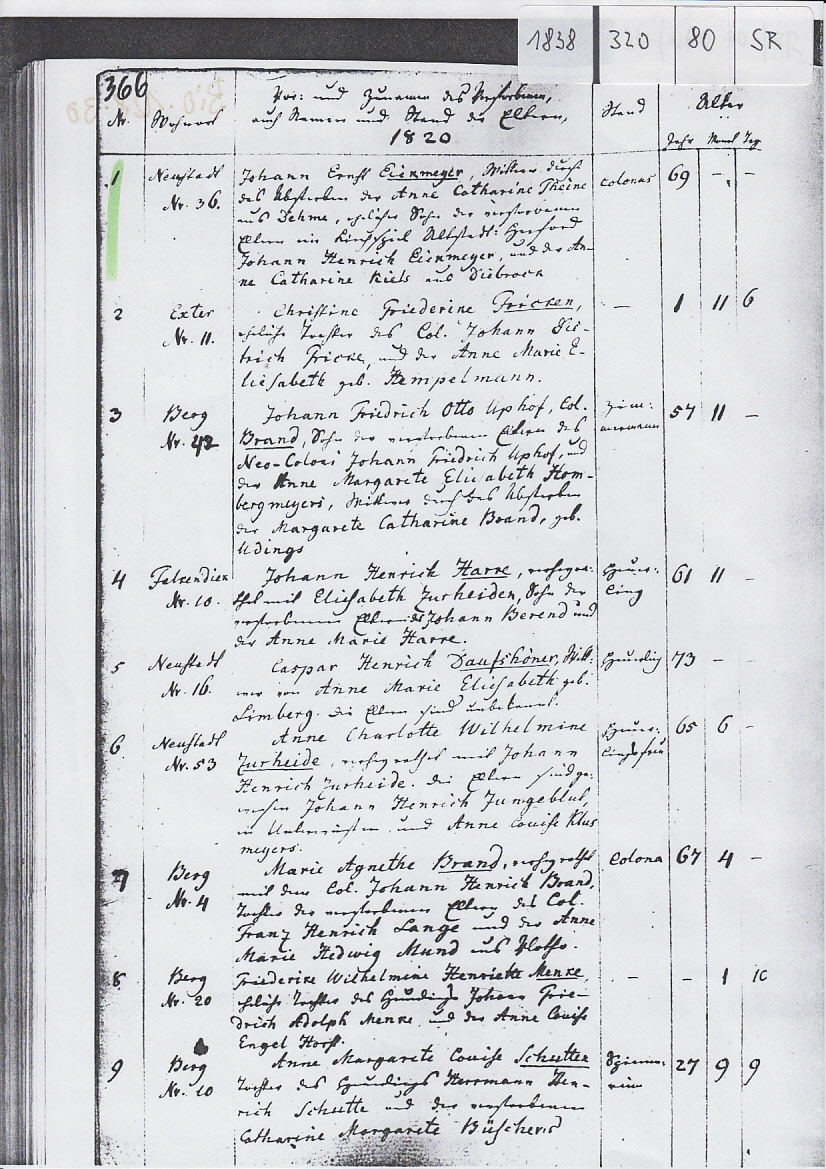 1838 320 80 SR
366
Nr. Wohnort Vor- und Zunamen des Verstorbenen, Stand Alter
auch Namen und Stand der Eltern,
1820 Jahr Monat Tag
1 Neustadt Johann Ernst Eienmeyer, Wittwer durch colonus 69 - -
Nr. 36. das Absterben der Anne Catharine Theine
aus Dehme, ehelicher Sohn der verstorbenen
Eltern im Kirchspiel Altstadt: Herford
Johann Henrich Eienmeyer, und der An-
ne Catharine Kiels aus Diebrock
2 Exter Christine Friederine Fricken, - 1 11 6
Nr. 11. eheliche Tochter des Col. Johann Die-
trich Fricke, und der Anne Marie E-
liesabeth geb. Hempelmann.
3 Berg Johann Friedrich Otto Uphof, Col. Zim- 57 11 -
Nr. 42 Brand, Sohn der verstorbenen Eltern des mermann
Neo-Coloni Johann Friedrich Uphof, und
der Anne Margarete Eliesabeth Hom-
bergmeyers, Wittwer durch das Absterben
der Margarete Catharine Brand, geb.
Udings
4 Falkendiek Johann Henrich Harre, verheyra- Heuer- 61 11 -
Nr. 10. thet mit Eliesabeth Zurheiden, Sohn der ling
verstorbenen Eltern des Johann Berend und
der Anne Marie Harre.
5 Neustadt Caspar Henrich Daufshöner, Witt- Heuerling 73 - -
Nr. 16. wer von Anne Marie Eliesabeth geb.
Limberg. Die Eltern sind unbekannt.
6 Neustadt Anne Charlotte Wilhelmine Heuer- 65 6 -
Nr. 53 Zurheide, verheyrathet mit Johann lingsfrau
Henrich Zurheide. Die Eltern sind ge-
wesen Johann Henrich Jungeblut,
in und Anne Louise Klus
meyers.
7 Berg Marie Agnethe Brand, verheyrathet Colona 67 4 -
Nr. 4 mit dem Col. Johann Henrich Brand,
Tochter der verstorbenen Eltern des Col.
Franz Henrich Lange und der Anne
Marie Hedwig Mund aus Vlotho.
8 Berg Friederike Wilhelmine Henriette Menke, - - 1 10
Nr. 20 eheliche Tochter des Heuerlings Johann Frie-
drich Adolph Menke und der Anne Louise
Engel Horst.
9 Berg Anne Margarete Louise Schutte Spinne- 27 9 9
Nr. 10 Tochter des Heuerlings Herrmann Hen- rin
rich Schutte und der verstorbenen
Catharine Margarete Büschers